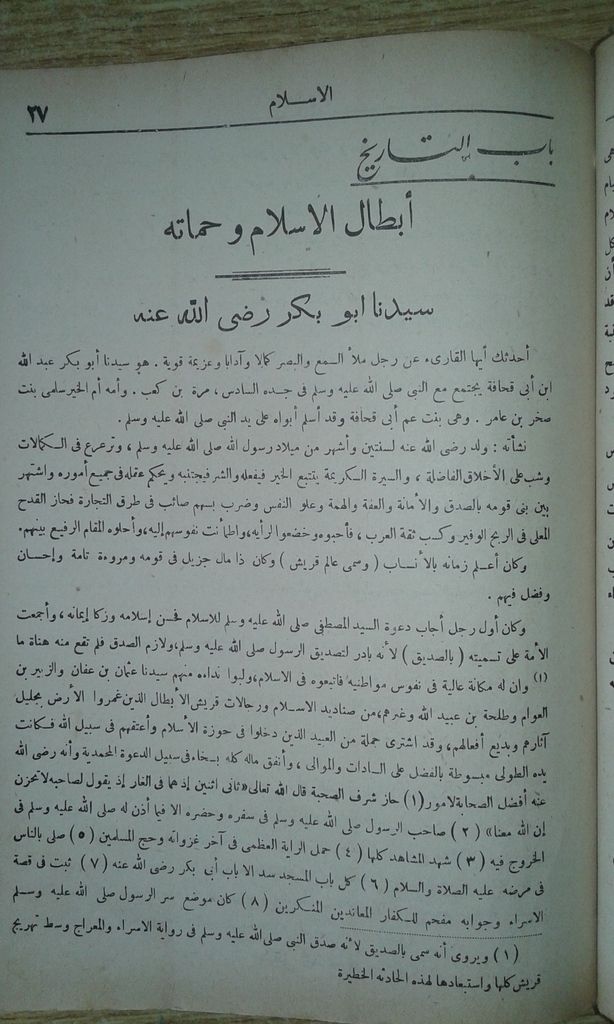 الاسلام
٢٧
باب التاريخ
أبطال الاسلام وحماته
سيدنا ابو بكر رضى الله عنه
أحدثك أيها القارىء عن رجل ملأ السمع والبصر كمالا وآدابا وعزيمة قوية . هو سيدنا أبو بكر عبد الله
ابن أبى قحافة يجتمع مع النبى صلى الله عليه وسلم فى جده السادس ، مرة بن كعب . وأمه أم الخير سلمى بنت
صخر بن عامر . وهى بنت عم أبى قحافة وقد أسلم أبواه على يد النبى صلى الله عليه وسلم .
نشأته : ولد رضى الله عنه لسنتين وأشهر من ميلاد رسول الله صلى الله عليه وسلم ، وترعرع فى الكمالات
وشب على الأخلاق الفاضلة ، والسيرة الكريمة يتتبع الخير فيفعله والشر فيجتنبه ويحكم عقله فى جميع أموره واشتهر
بين بنى قومه بالصدق والأمانة والعفة والهمة وعلو النفس وضرب بسهم صائب فى طرق التجارة فحاز القدح
المعلى فى الربح الوفير وكسب ثقة العرب ، فأحبوه وخضعوا لرأيه، واطمأنت نفوسهم إليه، وأحلوه المقام الرفيع بينهم.
وكان أعلم زمانه بالأنساب ( وسمى عالم قريش ) وكان ذا مال جزيل فى قومه ومروءة تامة وإحسان
وفضل فيهم .
وكان أول رجل أجاب دعوة السيد المصطفى صلى الله عليه وسلم للاسلام فحسن إسلامه وزكا إيمانه ، وأجمعت
الأمة على تسميته ( بالصديق ) لأنه بادر لتصديق الرسول صلى الله عليه وسلم، ولازم الصدق فلم تقع منه هناة ما
(١) وان له مكانة عالية فى نفوس مواطنيه فاتبعوه فى الاسلام، ولبوا نداءه منهم سيدنا عثمان بن عفان والزبير بن
العوام وطلحة بن عبيد الله وغيرهم، من صناديد الاسلام ورجالات قريش الأبطال الذين غمروا الأرض بجليل
آثارهم وبديع أفعالهم، وقد اشترى جملة من العبيد الذين دخلوا فى حوزة الأسلام وأعتقهم فى سبيل الله فكانت
يده الطولى مبسوطة بالفضل على السادات والموالى ، وأنفق ماله كله بسخاء فى سبيل الدعوة المحمدية وأنه رضى الله
عنه أفضل الصحابة لامور (١) حاز شرف الصحبة قال الله تعالى «ثانى اثنين إذ هما فى الغار إذ يقول لصاحبه لا تحزن
إن الله معنا» (٢) صاحب الرسول صلى الله عليه وسلم فى سفره وحضره الا فيما أذن له صلى الله عليه وسلم فى
الخروج فيه (٣) شهد المشاهد كلها (٤) حمل الراية العظمى فى آخر غزواته وحج المسلمين (٥) صلى بالناس
فى مرضه عليه الصلاة والسلام (٦) كل باب المسجد سد الا باب أبى بكر رضى الله عنه (٧) ثبت فى قصة
الاسراء وجوابه مفحم للكفار المعاندين المنكرين (٨) كان موضع سر الرسول صلى الله عليه وسلم
(١) ويروى أنه سمى بالصديق لأنه صدق النبى صلى الله عليه وسلم فى رواية الاسراء والمعراج وسط تهريج
قريش كلها واستبعادها لهذه الحادثه الخطيرة